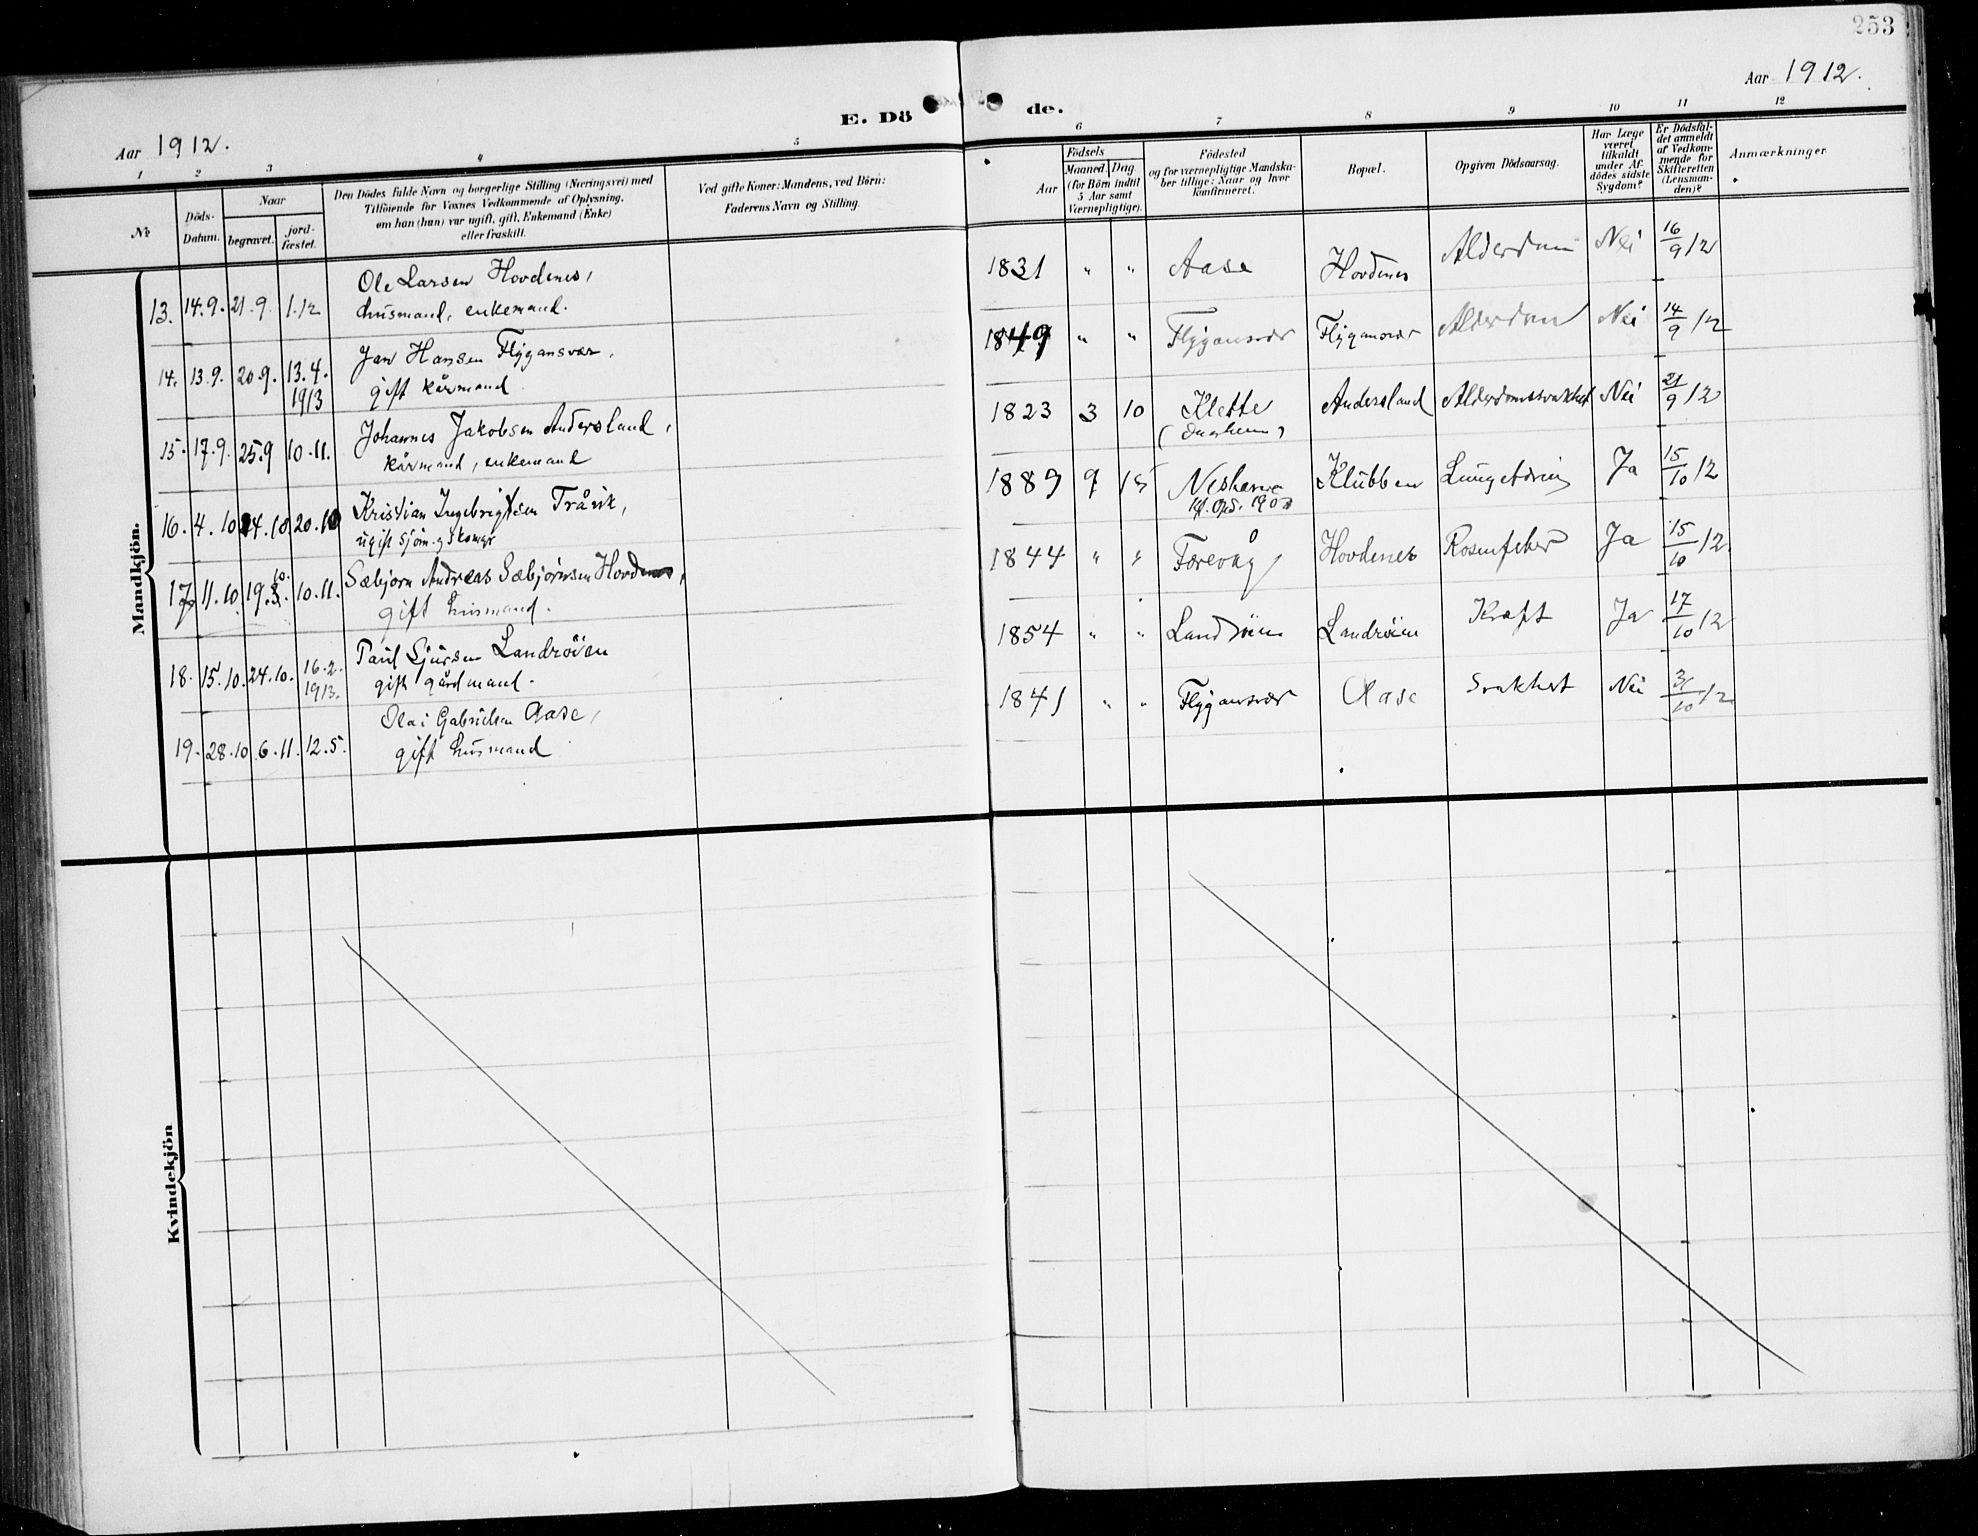 253
Aar 1912.
Aar 1912.
E. Dö
de.
1 2 3 4 5
6 7 8 9 10 11 12
№
Döds-
Datum.
Naar
begravet.
jord-
fæstet.
Den Dödes fulde Navn og borgerlige Stilling (Næringsvei) med
Tilföiende for Voxnes Vedkommende af Oplysning,
om han (hun) var ugift, gift, Enkemand (Enke)
eller fraskilt.
Ved gifte Koner: Mandens, ved Börn:
Faderens Navn og Stilling.
Aar
Födsels
Maaned. Dag.
(for Börn indtil
5 Aar samt
Værnepligtige).
Födested
og for værnepligtige Mandska-
ber tillige: Naar og hvor
konfirmeret.
Bopæl.
Opgiven Dödsaarsag.
Har Læge
været
tilkaldt
under Af-
dödes sidste
Sygdom?
Er Dödsfal-
det anmeldt
af Vedkom-
mende for
Skifteretten
(Lensman-
den)?
Anmærkninger
Mandkjön.
13. 14.9. 21.9. 1.12 Ole Larsen Hovdenes,
husmand, enkemand.
1831 " " Aase Hovdenes Alderdom Nei 16/9 12
14. 13.9. 20.9. 13.4. 1913 Jan Hansen Flygansvær,
gift kårmand
1849 " " Flygansvær Flygansvær Alderdom Nei 14/9 12
15. 17.9. 25.9 10.11. Johannes Jakobsen Andersland,
kårmand, enkemand
1823 3 10 Klette Andersland Alderdomssvakhet Nei 21/9 12
16. 4.10 14.10 20.10 Kristian Ingebrigtsen Tråvik,
ugift sjøm.
1889 9 15 Klubben Ja 15/10 12
17 11.10. 19.10. 10.11. Sæbjørn Andreas Sæbjørnsen Hovdenes,
gift husmand.
1844 " " Færevåg Hovdenes Rosenfeber Ja 15/10 12
18. 15.10. 24.10. 16.2. 1913. Paul Sjursen Landrøien
gift gårdmand.
1854 " " Landrøien Landrøien Kræft Ja 17/10 12
19. 28.10 6.11. 12.5. Olai Gabrielsen Aase,
gift husmand
1841 " " Flygansvær Aase Svakhet Nei 31/10 12
Kvindekjön